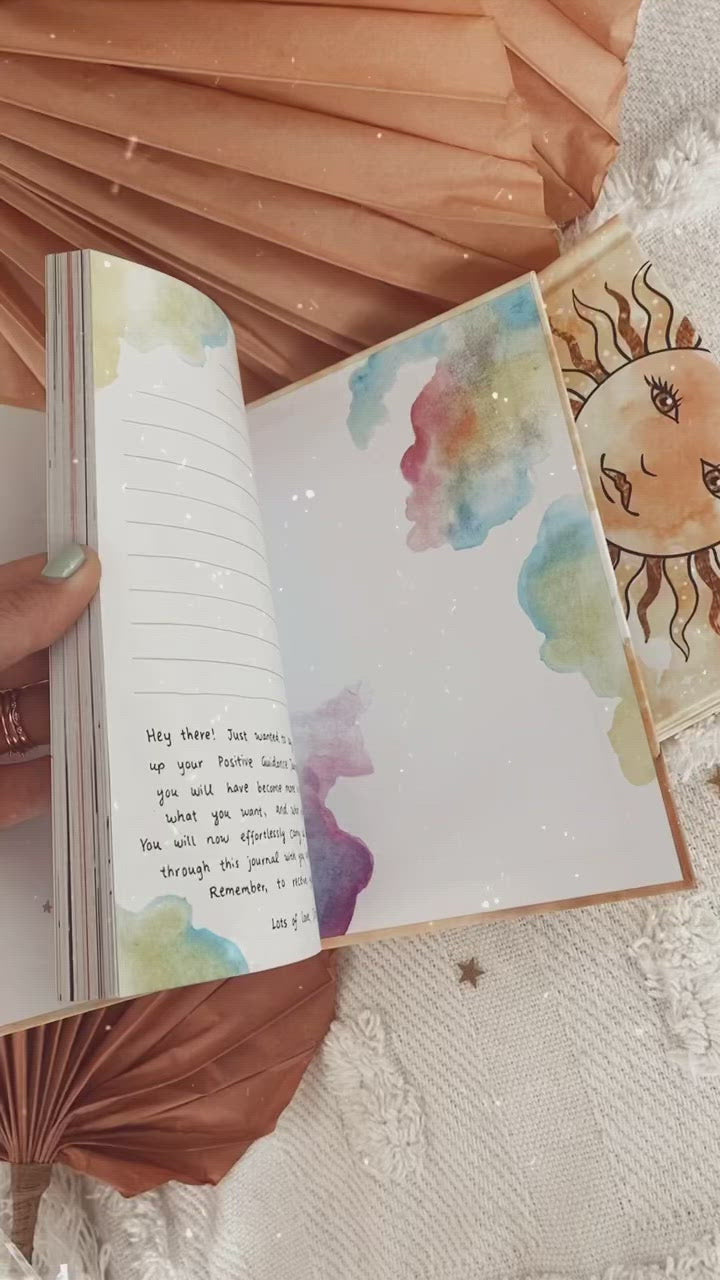 Hey there! Just wanted to
up your Positive Guidance
you will have become more
what you want, and
You will now effortlessly carry
through this journal with you
Remember, to receive
Lots of love,